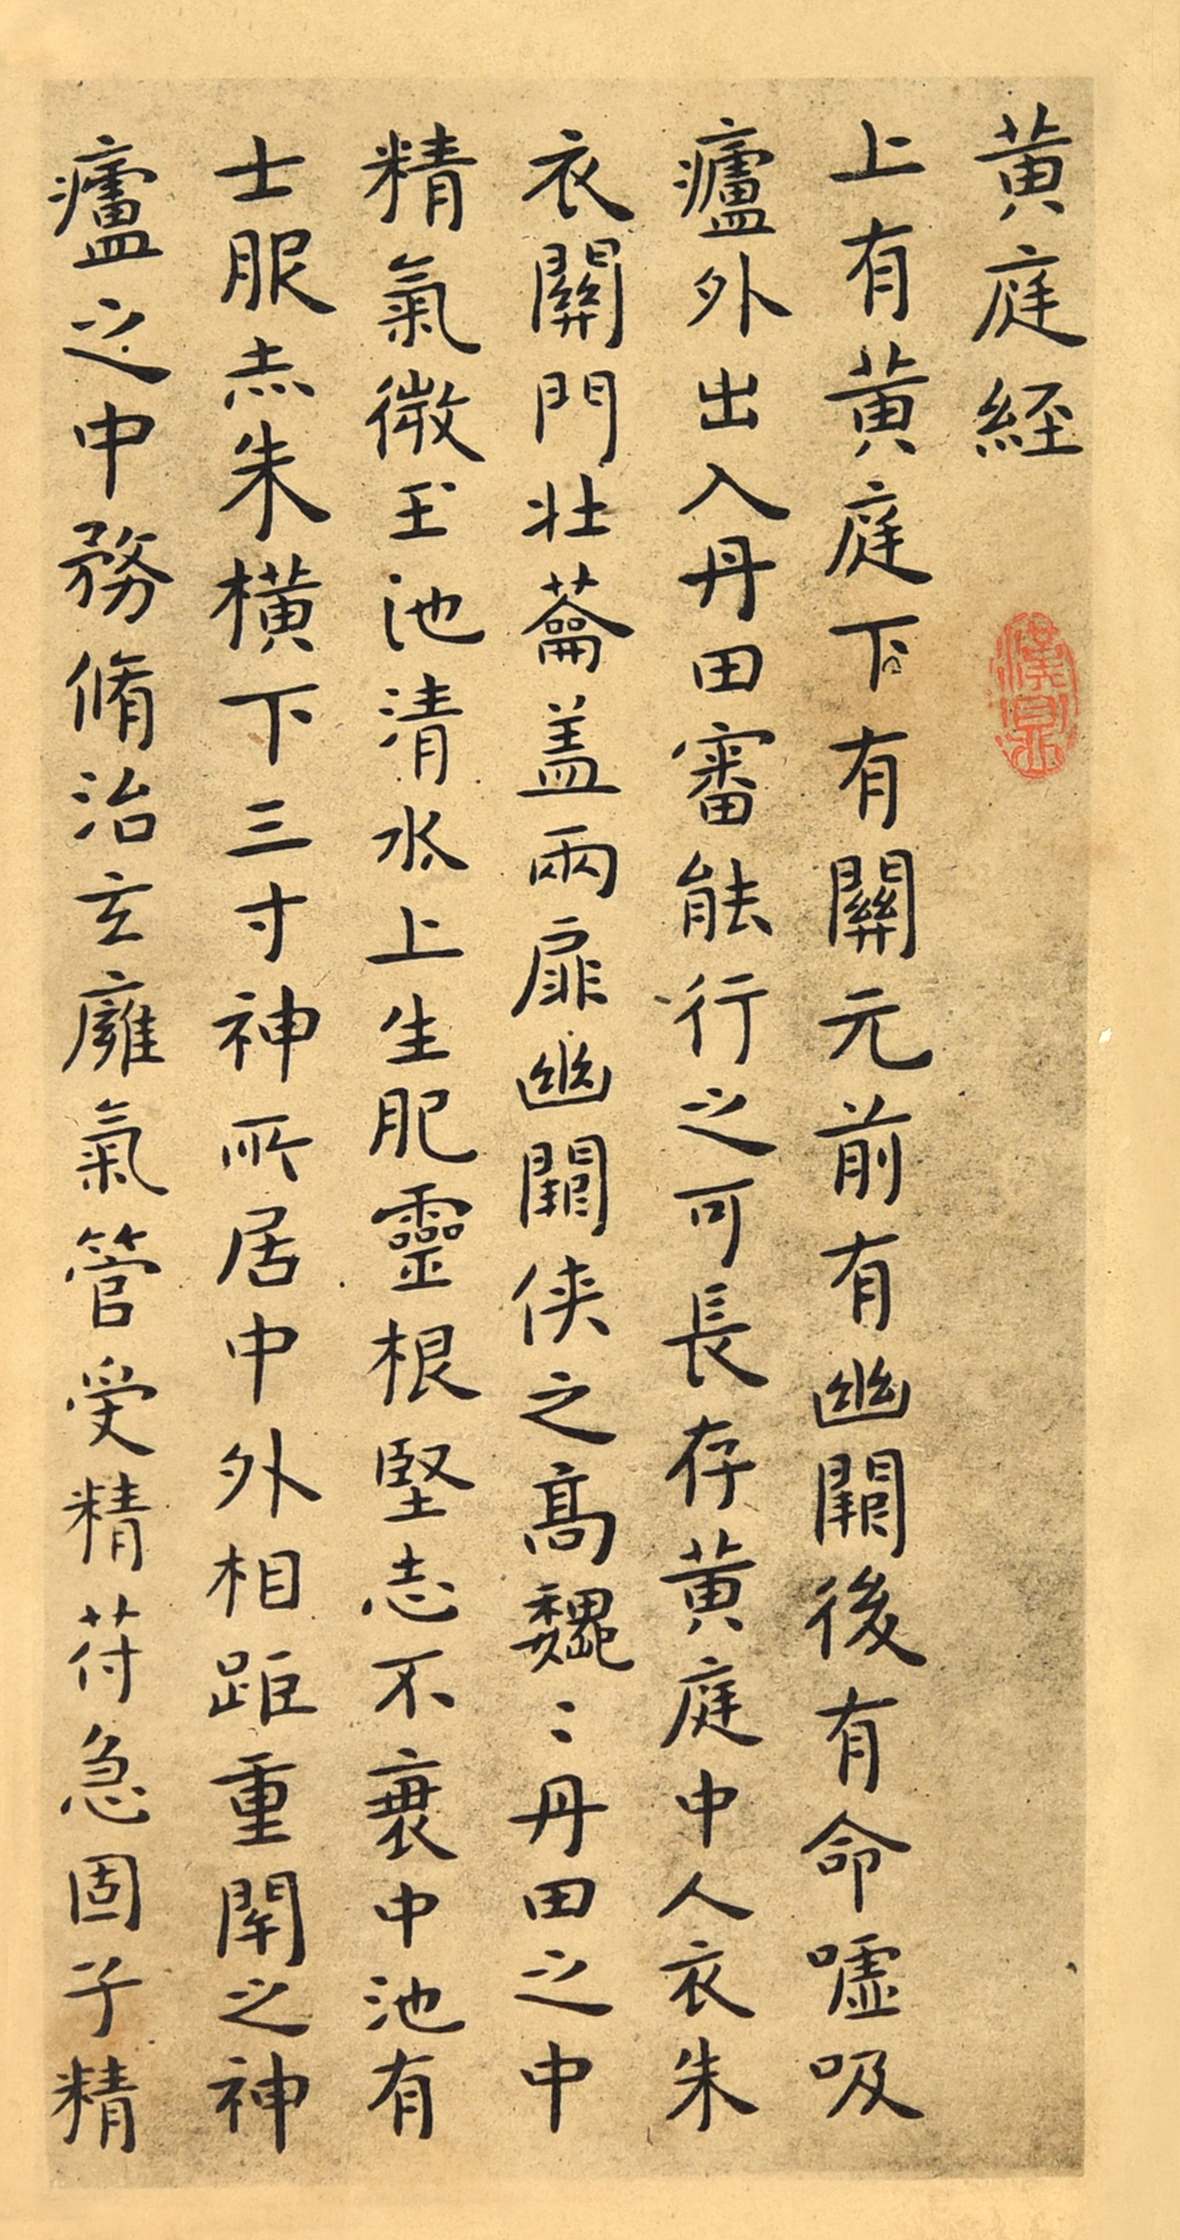 黄庭経
上有黄庭下有關元前有幽闕後有命嘘吸
廬外出入丹田審能行之可長存黄庭中人衣朱
衣關門壮蘥盖兩扉幽闕侠之高魏〻丹田之中
精氣微玉池清水上生肥靈根堅志不衰中池有
士服赤朱横下三寸神所居中外相距重閇之神
廬之中務脩治玄廱氣管受精苻急固子精